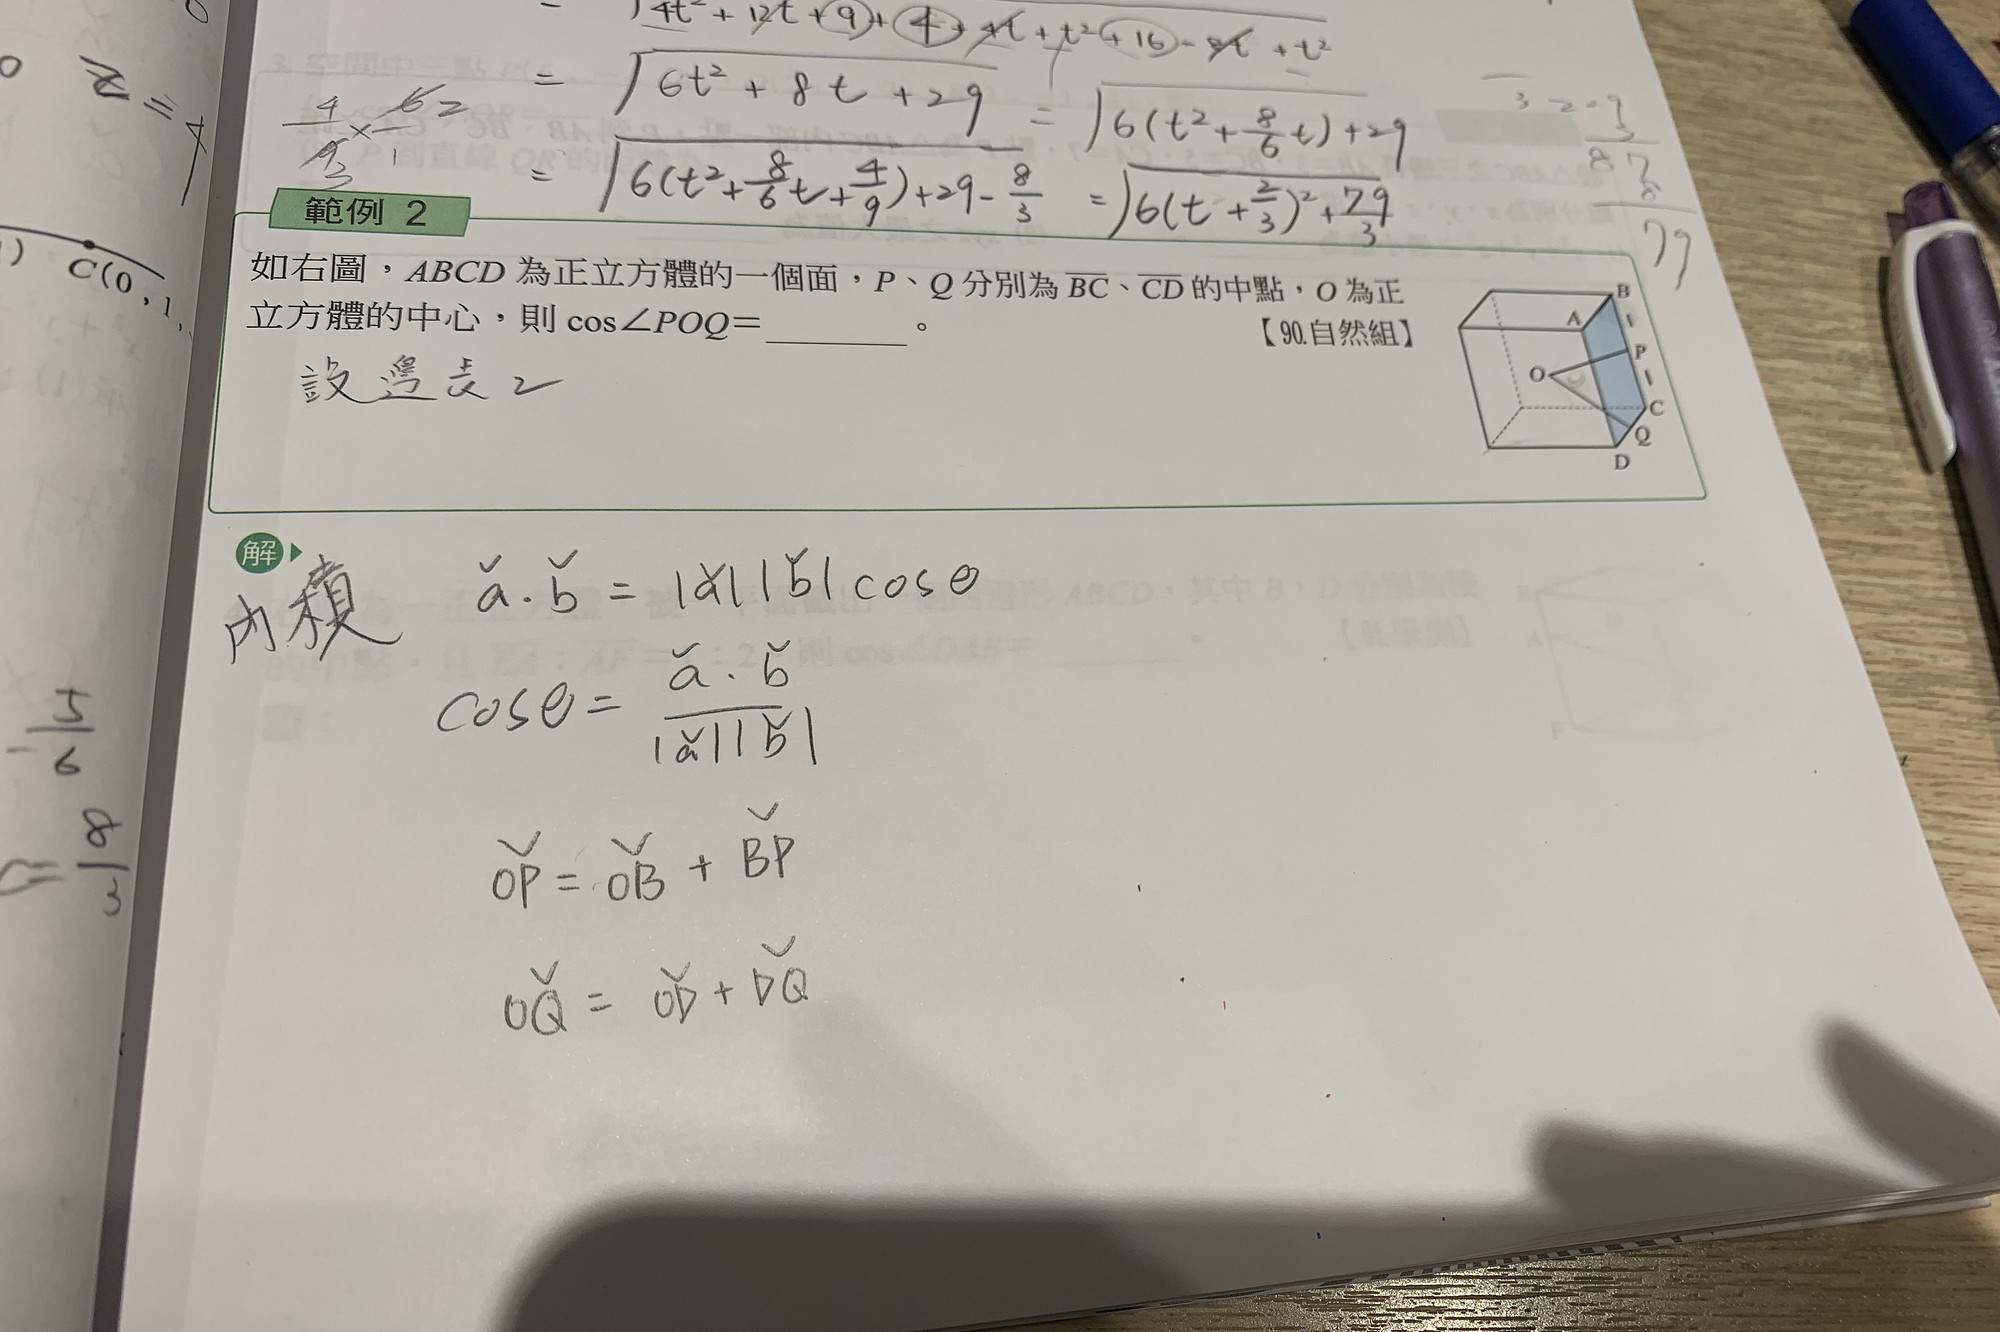 = √4t² + 12t + 9 + 4 + 4t + t² + 16 - 8t + t²
= √6t² + 8t + 29 = √6(t² + 8/6 t) + 29
4/93 × 62/1
= √6(t² + 8/6 t + 4/9) + 29 - 8/3 = √6(t + 2/3)² + 79/3
87
8
79
z = 4
C(0, 1,
範例 2
如右圖，ABCD 為正立方體的一個面，P、Q 分別為 BC、CD 的中點，O 為正
立方體的中心，則 cos∠POQ=________。
【90.自然組】
設邊長 2
B
A
1
P
O
1
C
Q
D
解
內積 a · b = |a||b| cosθ
cosθ = a · b / |a||b|
OP = OB + BP
OQ = OD + DQ
5/6
= 8/3